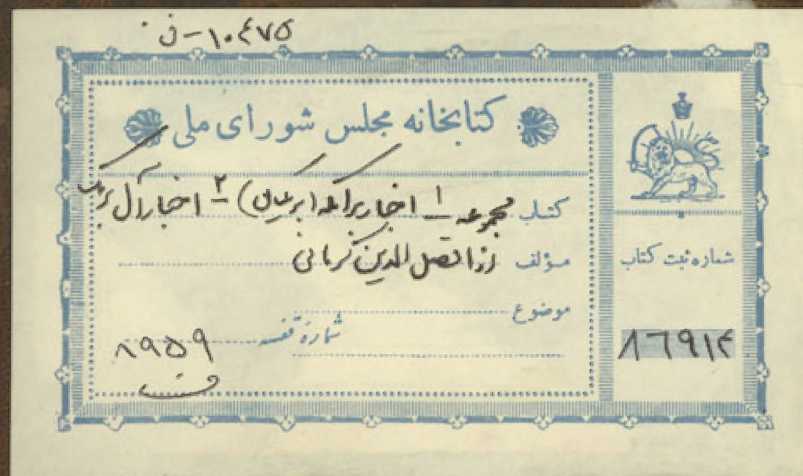 ۱۰۴۷۵-ف
کتابخانه مجلس شورای ملی
کتاب مجموعه ۱ اخبار برامکه (برمکیان) ۲ اخبار آل برمک
مؤلف از افضل الدین کرمانی
موضوع
شماره قفسه
۸۹۵۹
شماره ثبت کتاب
۸۶۹۱۴